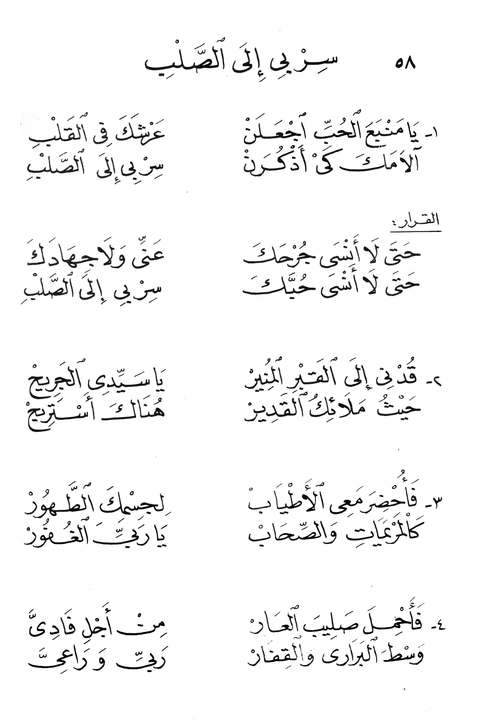 ٥٨ سِرْ بِي إِلَى ٱلصَّلْبِ
١- يَا مَنْبَعَ ٱلْحُبِّ ٱجْعَلَنْ عَرْشَكَ فِي ٱلْقَلْبِ
آلاَمَكَ كَيْ أَذْكُرَنْ سِرْ بِي إِلَى ٱلصَّلْبِ
القرار:
حَتَّى لَا أَنْسَى جُرْحَكَ عَنِّي وَلَا جِهَادَكَ
حَتَّى لَا أَنْسَى حُبَّكَ سِرْ بِي إِلَى ٱلصَّلْبِ
٢- قُدْنِي إِلَى ٱلْقَبْرِ ٱلْمُنِيرْ يَا سَيِّدِي ٱلْجَرِيحْ
حَيْثُ مَلَائِكُ ٱلْقَدِيرْ هُنَاكَ أَسْتَرِيحْ
٣- فَأُحْضِرَ مَعِي ٱلْأَطْيَابْ لِجِسْمِكَ ٱلطَّهُورْ
كَٱلْمَرْيَمَاتِ وَالصِّحَابْ يَا رَبِّيَ ٱلْغَفُورْ
٤- فَأَحْمِلَ صَلِيبَ ٱلْعَارْ مِنْ أَجْلِ فَادِيَّ
وَسْطَ ٱلْبَرَارِي وَٱلْقِفَارْ رَبِّي وَرَاعِيَّ